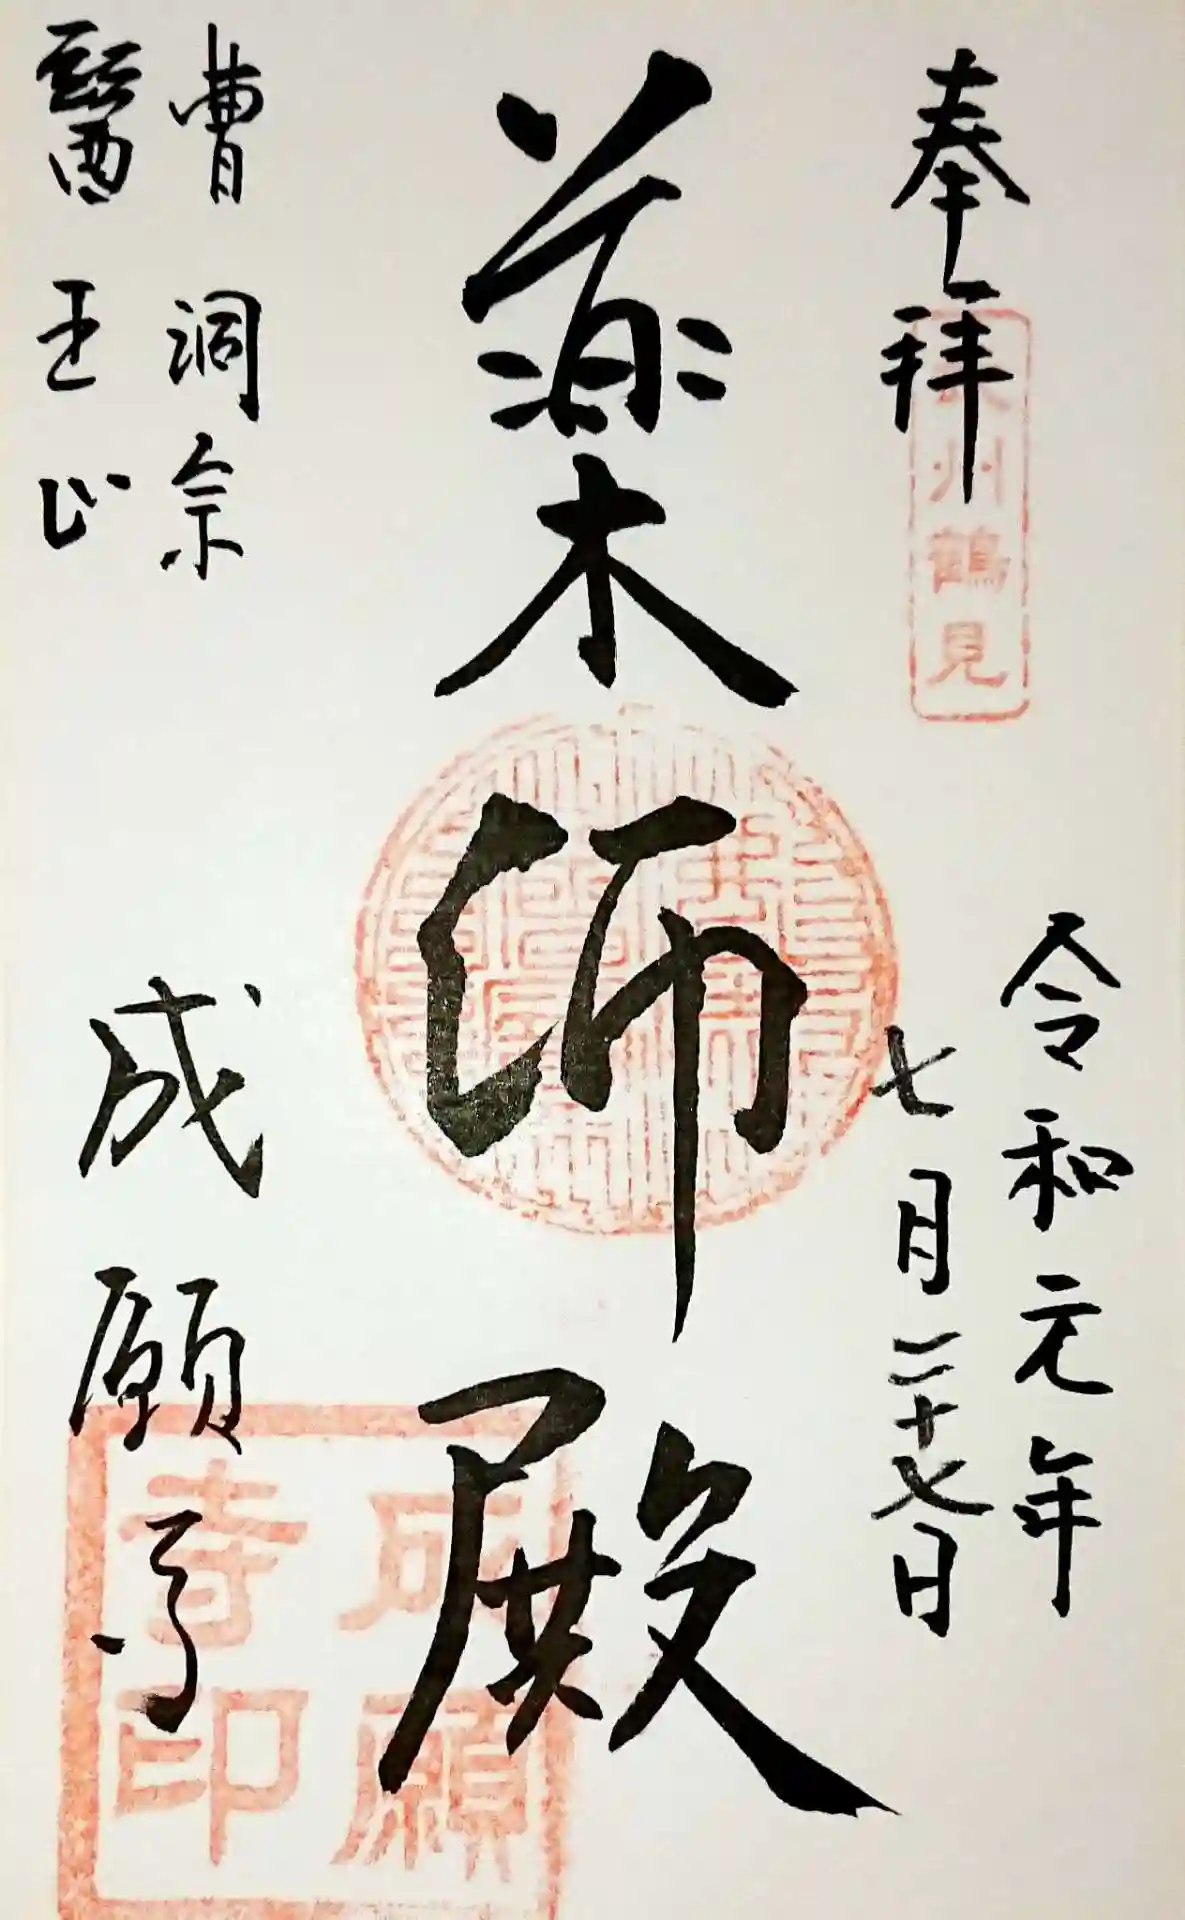 奉拝
州鶴見
令和元年
七月二十七日
薬師殿
曹洞宗
醫王山
成願寺
成願寺印